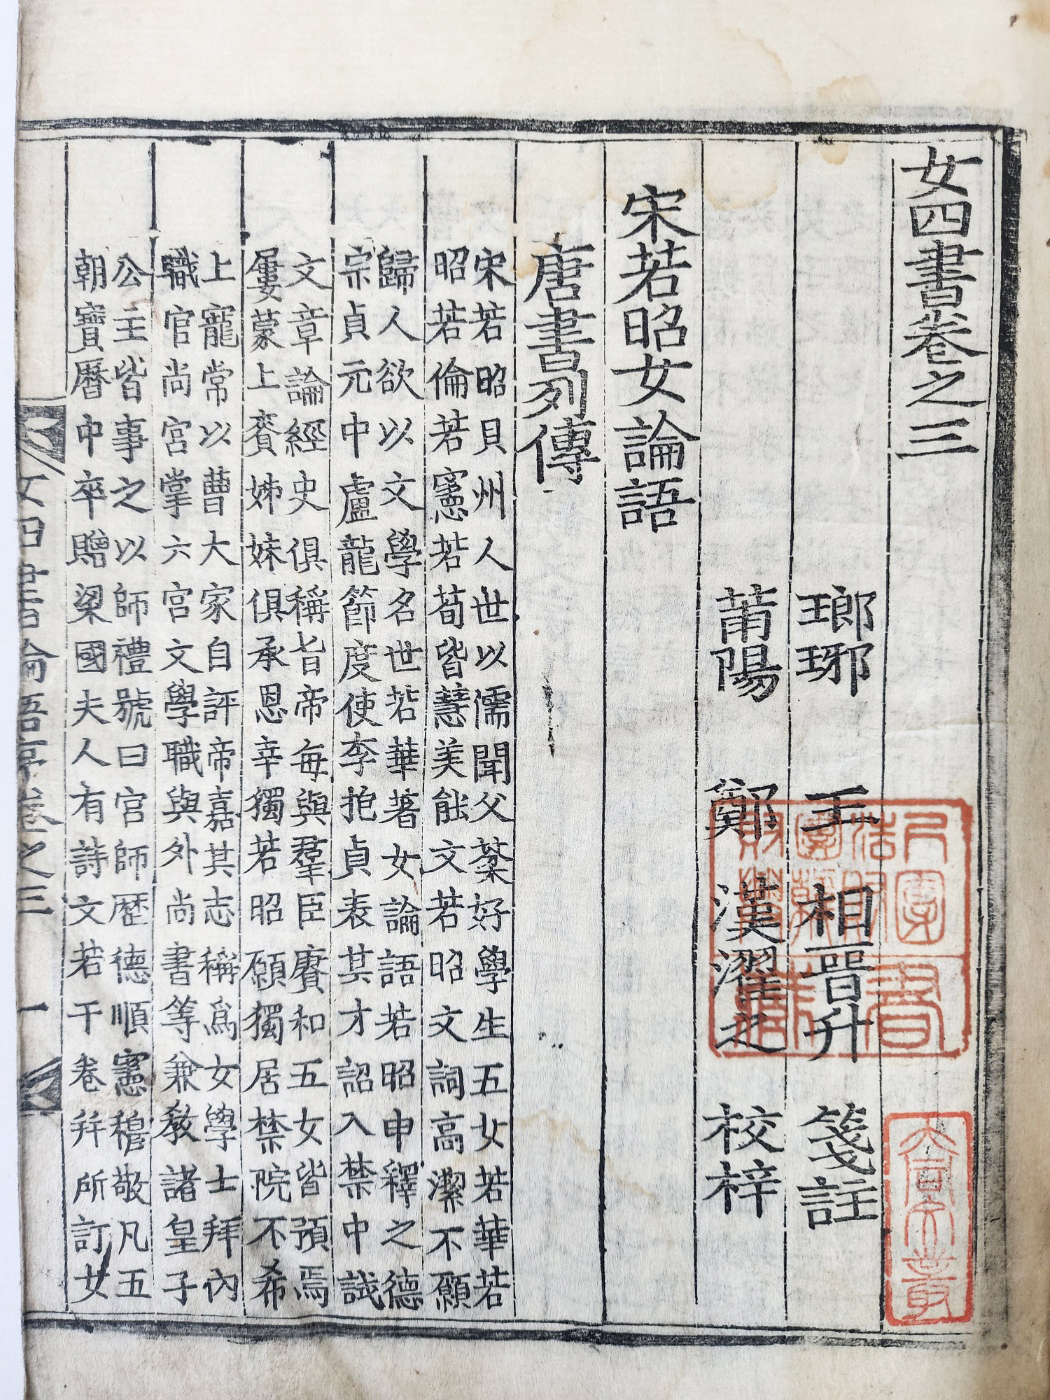 女四書卷之三
瑯琊 王 相 晋升 箋註
莆陽 鄭 漢 濯之 校梓
宋若昭女論語
唐書列傳
宋若昭貝州人世以儒聞父棻好學生五女若華若
昭若倫若憲若荀皆慧美能文若昭文詞高潔不願
歸人欲以文學名世若華著女論語若昭申釋之德
宗貞元中盧龍節度使李抱貞表其才詔入禁中試
文章論經史俱稱旨帝每與羣臣賡和五女皆預焉
屢蒙上賚姊妹俱承恩幸獨若昭願獨居禁院不希
上寵常以曹大家自評帝嘉其志稱爲女學士拜內
職官尚宮掌六宮文學職與外尚書等兼敎諸皇子
公主皆事之以師禮號曰宮師歷德順憲穆敬凡五
朝寶曆中卒贈梁國夫人有詩文若干卷幷所訂女
女四書論語序卷之三 一